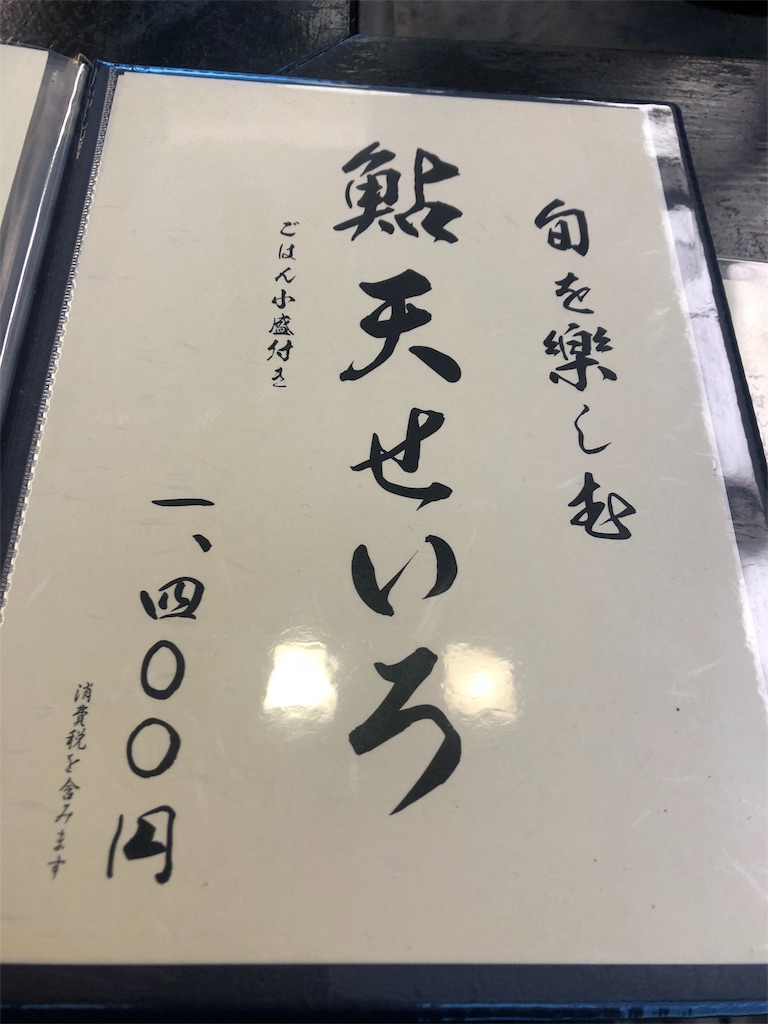 旬を樂しむ
鮎天せいろ
ごはん小盛付き
一、四〇〇円
消費税を含みます